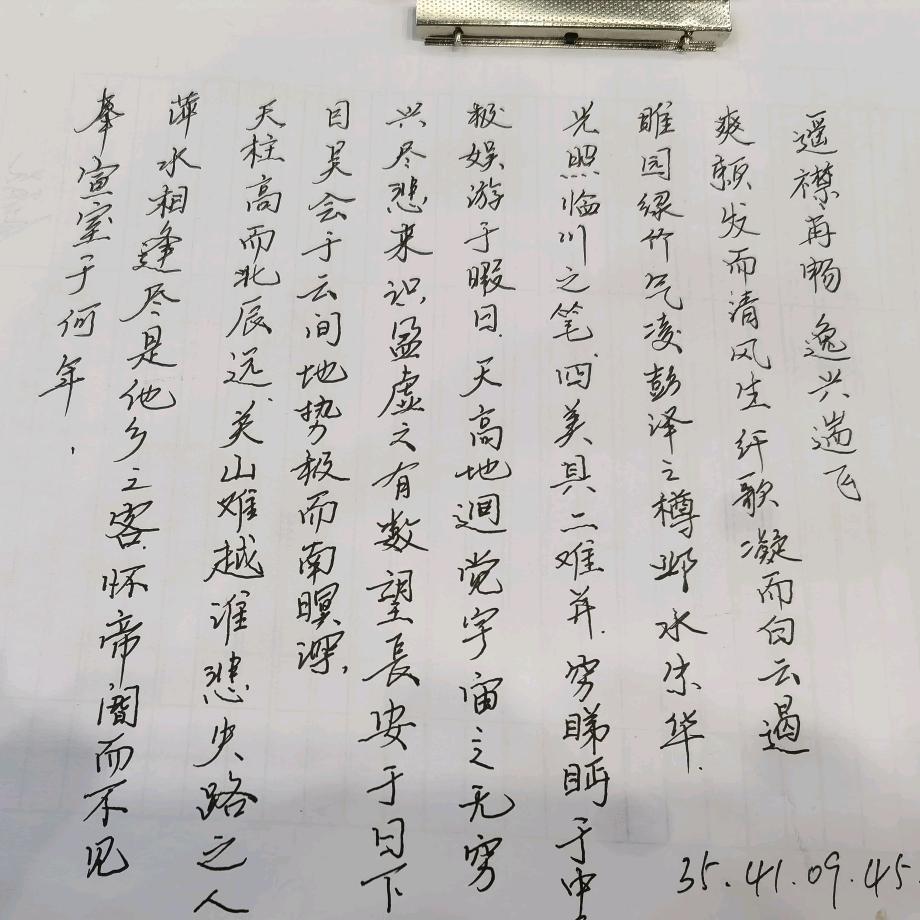 遥襟再畅逸兴遄飞
爽籁发而清风生纤歌凝而白云遏
睢园绿竹气凌彭泽之樽邺水朱华.
光照临川之笔.四美具二难并.穷睇眄于中
极娱游于暇日.天高地迥觉宇宙之无穷
兴尽悲来识盈虚之有数望長安于日下
目吴会于云间地势极而南暝深,
天柱高而北辰远.关山难越谁悲失路之人
萍水相逢尽是他乡之客.怀帝阍而不见
奉宣室于何年,
35.41.09.45.